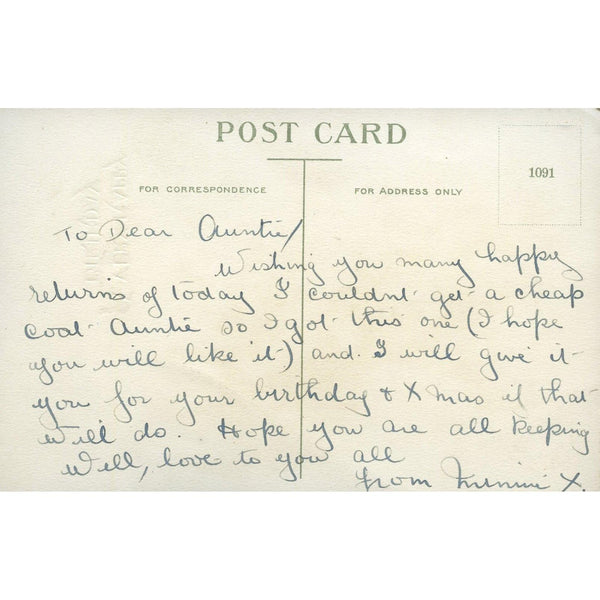 POST CARD
FOR CORRESPONDENCE
FOR ADDRESS ONLY
1091
To Dear Auntie/
Wishing you many happy
returns of today I couldnt get a cheap
coat Auntie so I got this one (I hope
you will like it) and I will give it
you for your birthday & Xmas if that
will do. Hope you are all keeping
well, love to you all
from X